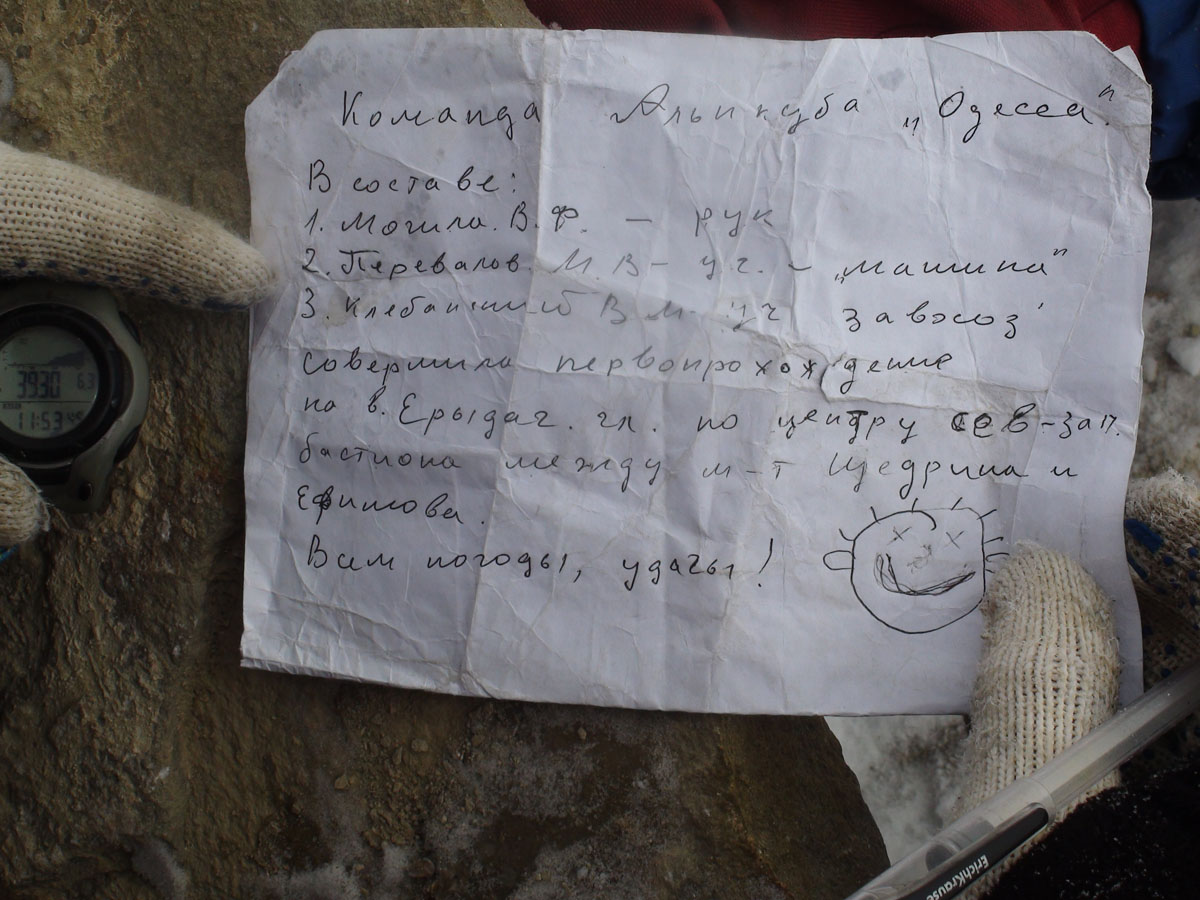 Команда Альпклуба „Одесса".
В составе:
1. Могила. В.Ф. – рук
2. Перевалов М.В – уч. – „машина"
3. Клебанский В М уч завхоз
совершила первопрохождение
на в. Ерыдаг. гл. по центру сев-зап.
бастиона между м-т Щедрина и
Ефимова.
Вам погоды, удачы!
3930 6.3
11:53 45
ErichKrause